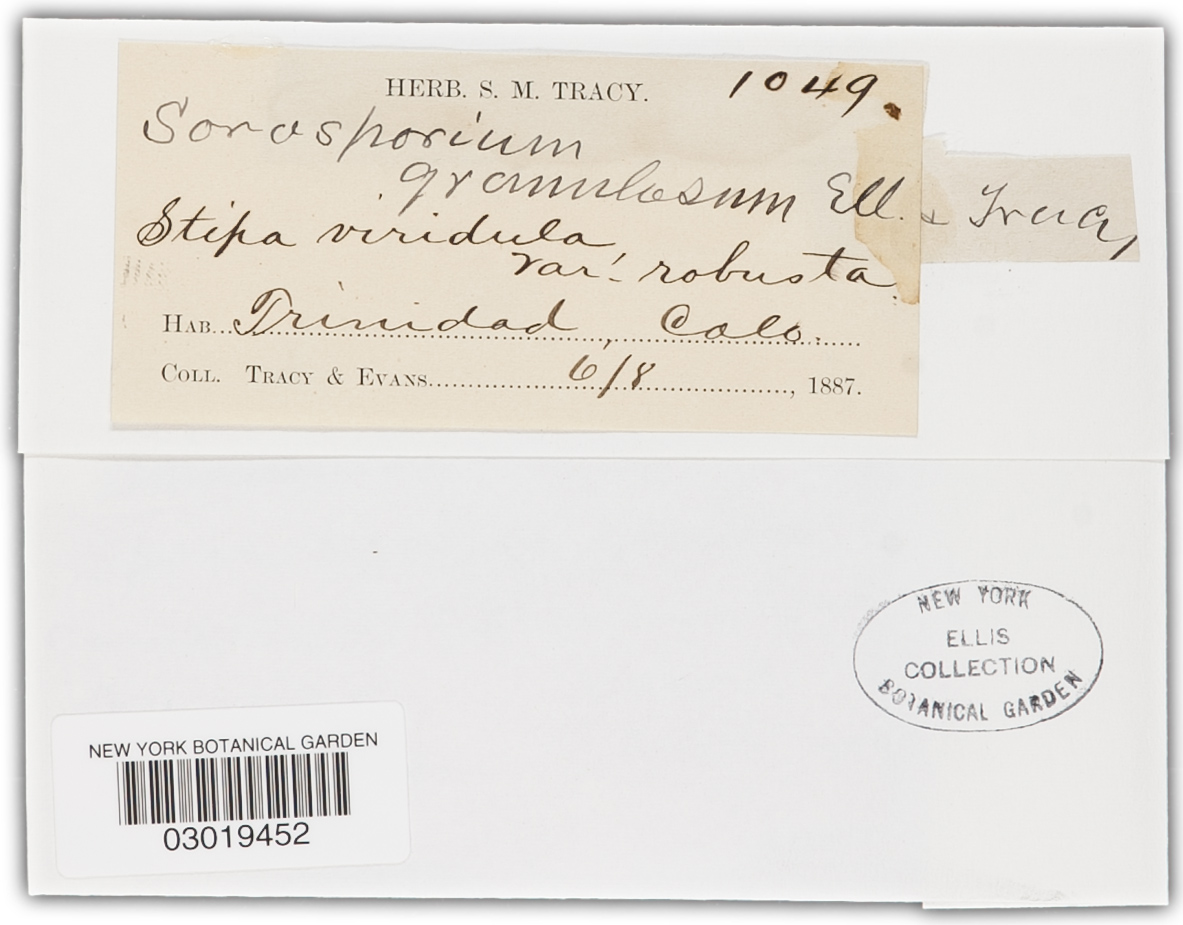 HERB. S. M. TRACY. 1049.
Sorosporium
granulosum Ell. & Tracy
Stipa viridula
var. robusta.
HAB... Trinidad, Colo.
COLL. TRACY & EVANS... 6/8 ..., 1887.
NEW YORK
ELLIS
COLLECTION
BOTANICAL GARDEN
NEW YORK BOTANICAL GARDEN
03019452